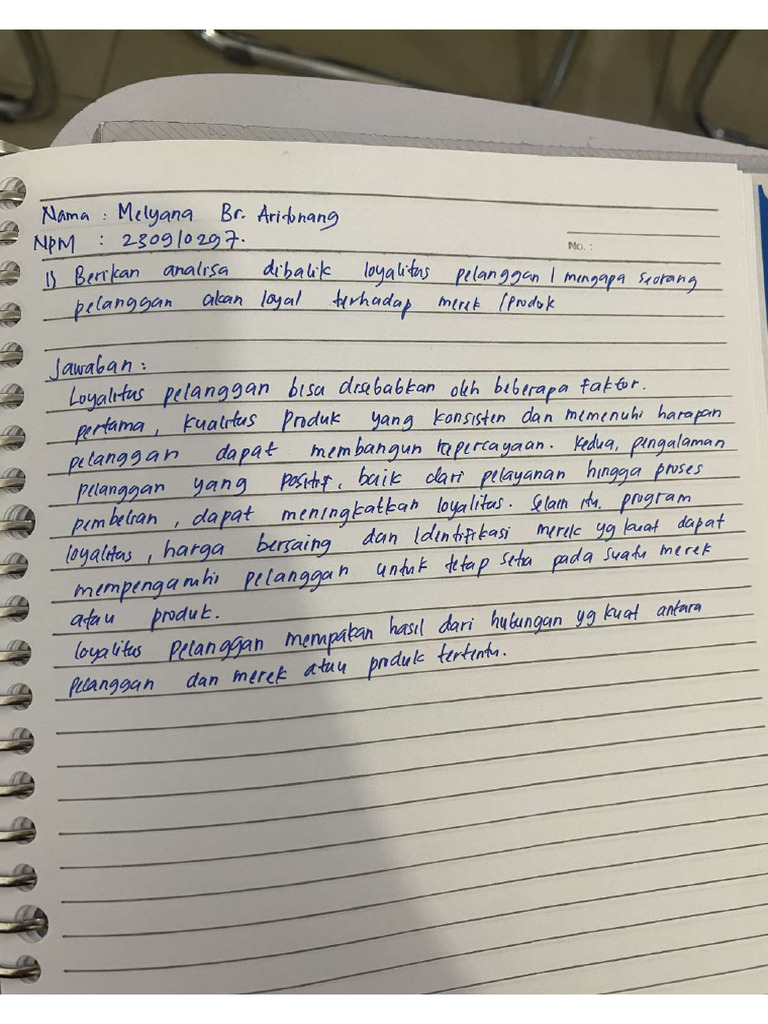 Nama : Melyana Br. Aritonang
NPM : 230910297.
No. :
1) Berikan analisa dibalik loyalitas pelanggan / mengapa seorang
pelanggan akan loyal terhadap merek / produk
Jawaban :
Loyalitas pelanggan bisa disebabkan oleh beberapa faktor.
pertama, kualitas produk yang konsisten dan memenuhi harapan
pelanggan dapat membangun kepercayaan. kedua, pengalaman
pelanggan yang positif, baik dari pelayanan hingga proses
pembelian, dapat meningkatkan loyalitas. Selain itu, program
loyalitas, harga bersaing dan identifikasi merek yg kuat dapat
mempengaruhi pelanggan untuk tetap setia pada suatu merek
atau produk.
loyalitas pelanggan merupakan hasil dari hubungan yg kuat antara
pelanggan dan merek atau produk tertentu.